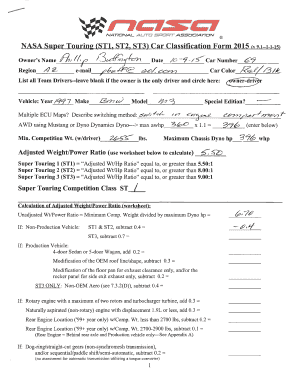 nasa
NATIONAL AUTO SPORT ASSOCIATION
NASA Super Touring (ST1, ST2, ST3) Car Classification Form 2015 (v 9.1--1-1-15)
Owner's Name Phillip Buffington Date 10-9-15 Car Number 69
Region AZ e-mail aol.com Car Color Red/Blk
List all Team Drivers--leave blank if the owner is the only driver and circle here: owner-driver
Vehicle: Year 1997 Make BMW Model M3 Special Edition?
Multiple ECU Maps? Describe switching method: switch in engine compartment
AWD using Mustang or Dyno Dynamics Dyno---> max awhp 360 x 1.1 = 396 (enter below)
Min. Competition Wt. (w/driver) 2655 lbs. Maximum Chassis Dyno hp 396 whp
Adjusted Weight/Power Ratio (use worksheet below to calculate) 5.50
Super Touring 1 (ST1) = "Adjusted Wt/Hp Ratio" equal to, or greater than 5.50:1
Super Touring 2 (ST2) = "Adjusted Wt/Hp Ratio" equal to, or greater than 8.00:1
Super Touring 3 (ST3) = "Adjusted Wt/Hp Ratio" equal to, or greater than 9.00:1
Super Touring Competition Class ST 1
Calculation of Adjusted Weight/Power Ratio (worksheet):
Unadjusted Wt/Power Ratio = Minimum Comp. Weight divided by maximum Dyno hp = 6.70
If: Non-Production Vehicle: ST1 & ST2, subtract 0.4 = -0.4
ST3, subtract 0.7 =
If: Production Vehicle:
4-door Sedan or 5-door Wagon, add 0.2 =
Modification of the OEM roof line/shape, subtract 0.3 =
Modification of the floor pan for exhaust clearance only, and/or the
rocker panel for side exit exhaust only, subtract 0.2 =
ST3 ONLY: Non-OEM Aero (see 7.3.2(D)), subtract 0.4 =
If: Rotary engine with a maximum of two rotors and turbocharger turbine, add 0.3 =
Naturally aspirated (non-rotary) engine with displacement 1.8L or less, add 0.3 =
Rear Engine Location ('99+ year only) w/Comp. Wt. less than 2700 lbs, subtract 0.2 =
Rear Engine Location ('99+ year only) w/Comp. Wt. 2700-2900 lbs, subtract 0.1 =
(Rear Engine = Behind rear axle and Production vehicle only--See Appendix A)
If: Dog-ring/straight-cut gears (non-synchromesh transmission),
and/or sequential/paddle shift/semi-automatic, subtract 0.2 =
(no assessment for automatic transmission utilizing a torque converter)
1